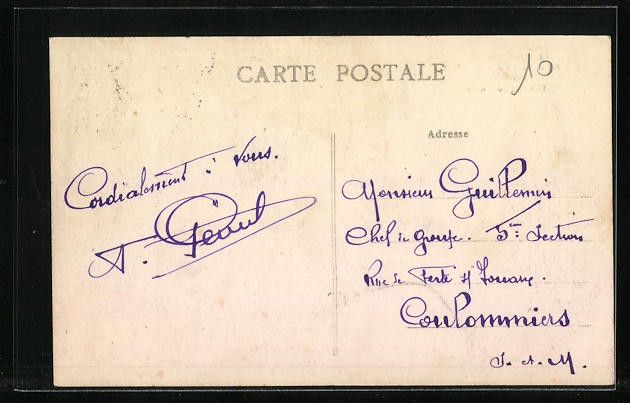 CARTE POSTALE
10
Adresse
Cordialement à vous.
Monsieur Guillemin
Chef de groupe. 5em Section
Rue de Ferté s/ Jouarre.
Coulommiers
S. et M.